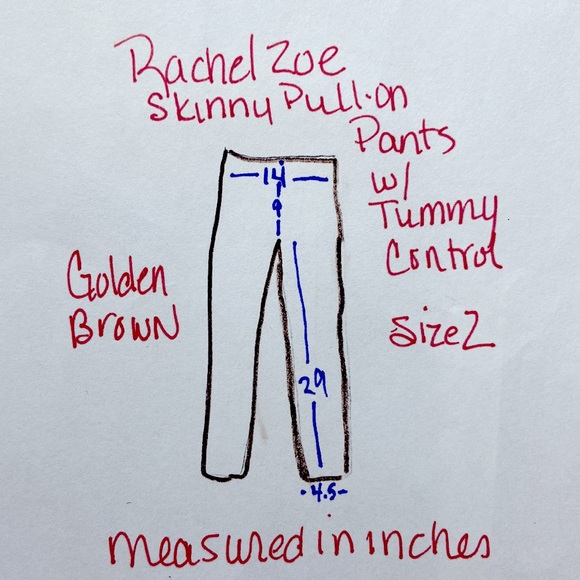 Rachel Zoe
Skinny Pull-on
Pants
w/
Tummy
Control
14
9
Golden
Brown
Size 2
29
4.5
measured in inches